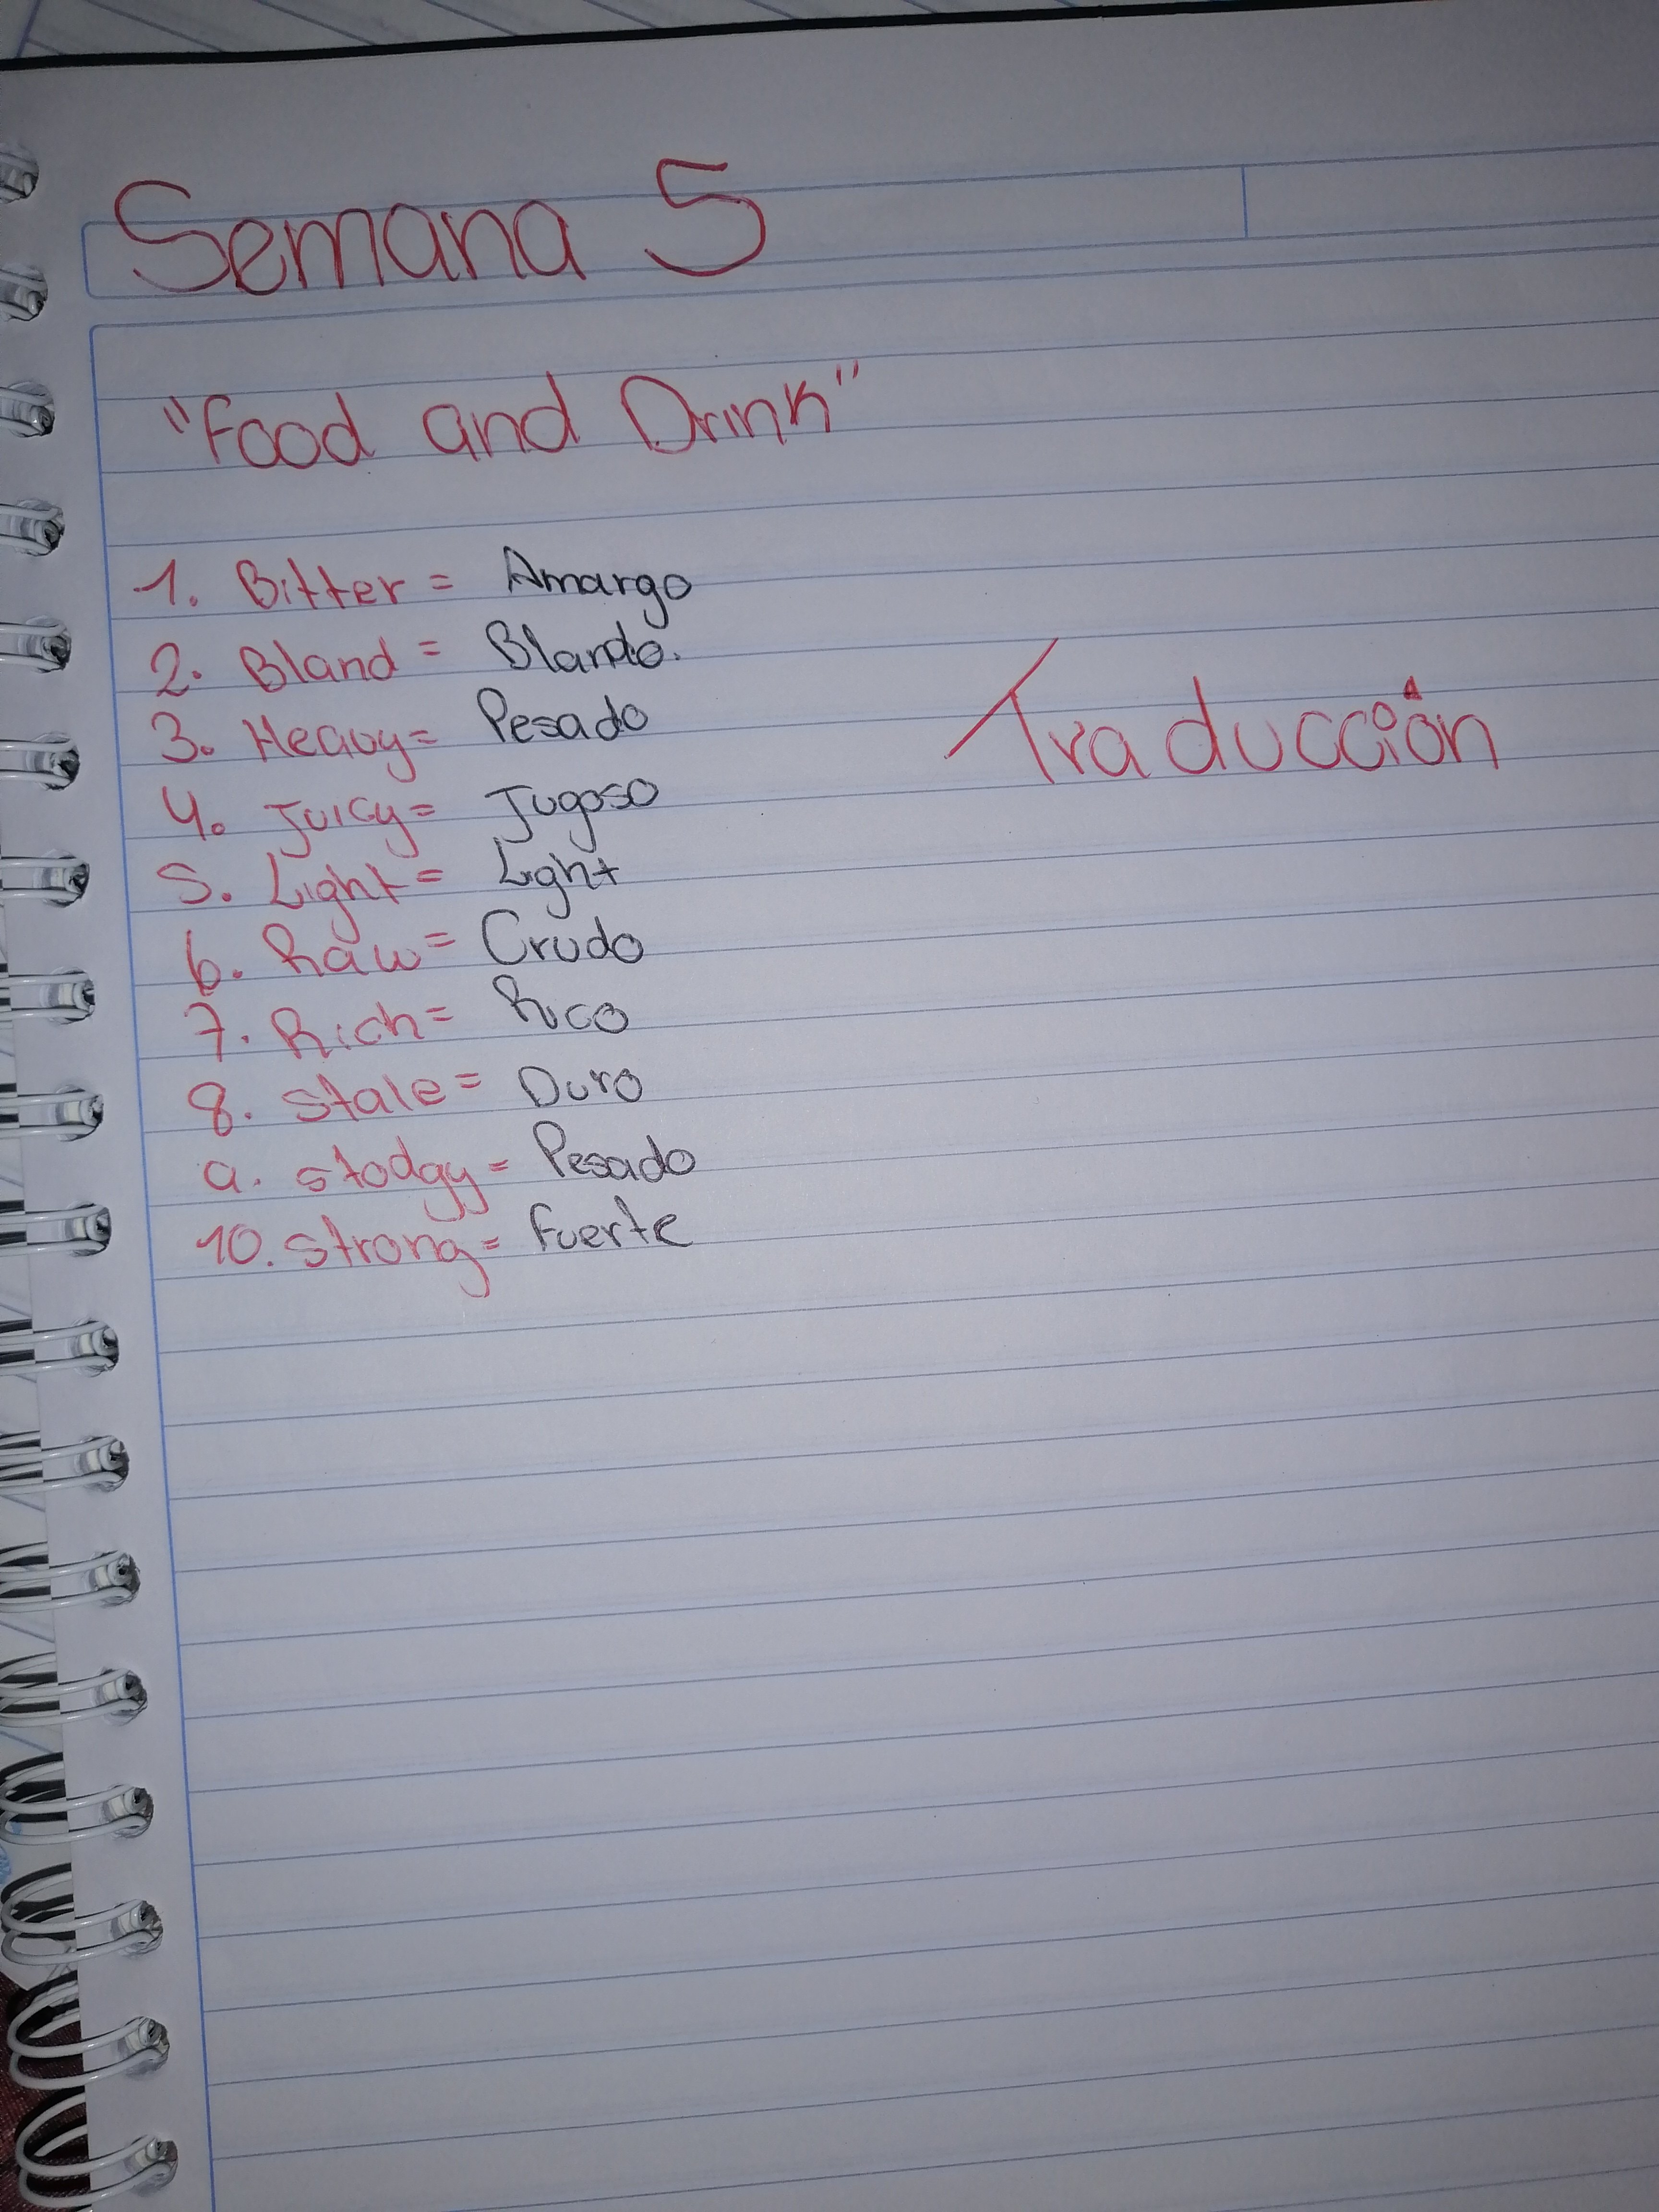 Semana 5
"Food and Drink"
1. Bitter = Amargo
2. Bland = Blando.
3. Heavy = Pesado
4. Juicy = Jugoso
5. Light = Light
6. Raw = Crudo
7. Rich = Rico
8. Stale = Duro
9. stodgy = Pesado
10. strong = Fuerte
Traducción